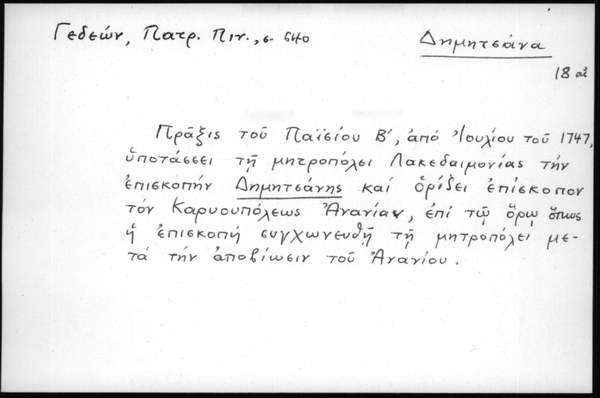 Γεδεών, Πατρ. Πιν., σ. 640
Δημητσάνα
18 αἰ
Πρᾶξις τοῦ Παϊσίου Β', ἀπό Ἰουλίου τοῦ 1747,
ὑποτάσσει τῇ μητροπόλει Λακεδαιμονίας τήν
ἐπισκοπήν Δημητσάνης καί ὁρίζει ἐπίσκοπον
τόν Καρυουπόλεως Ἀνανίαν, ἐπί τῷ ὅρῳ ὅπως
ἡ ἐπισκοπή συγχωνευθῇ τῇ μητροπόλει με-
τά τήν ἀποβίωσιν τοῦ Ἀνανίου.